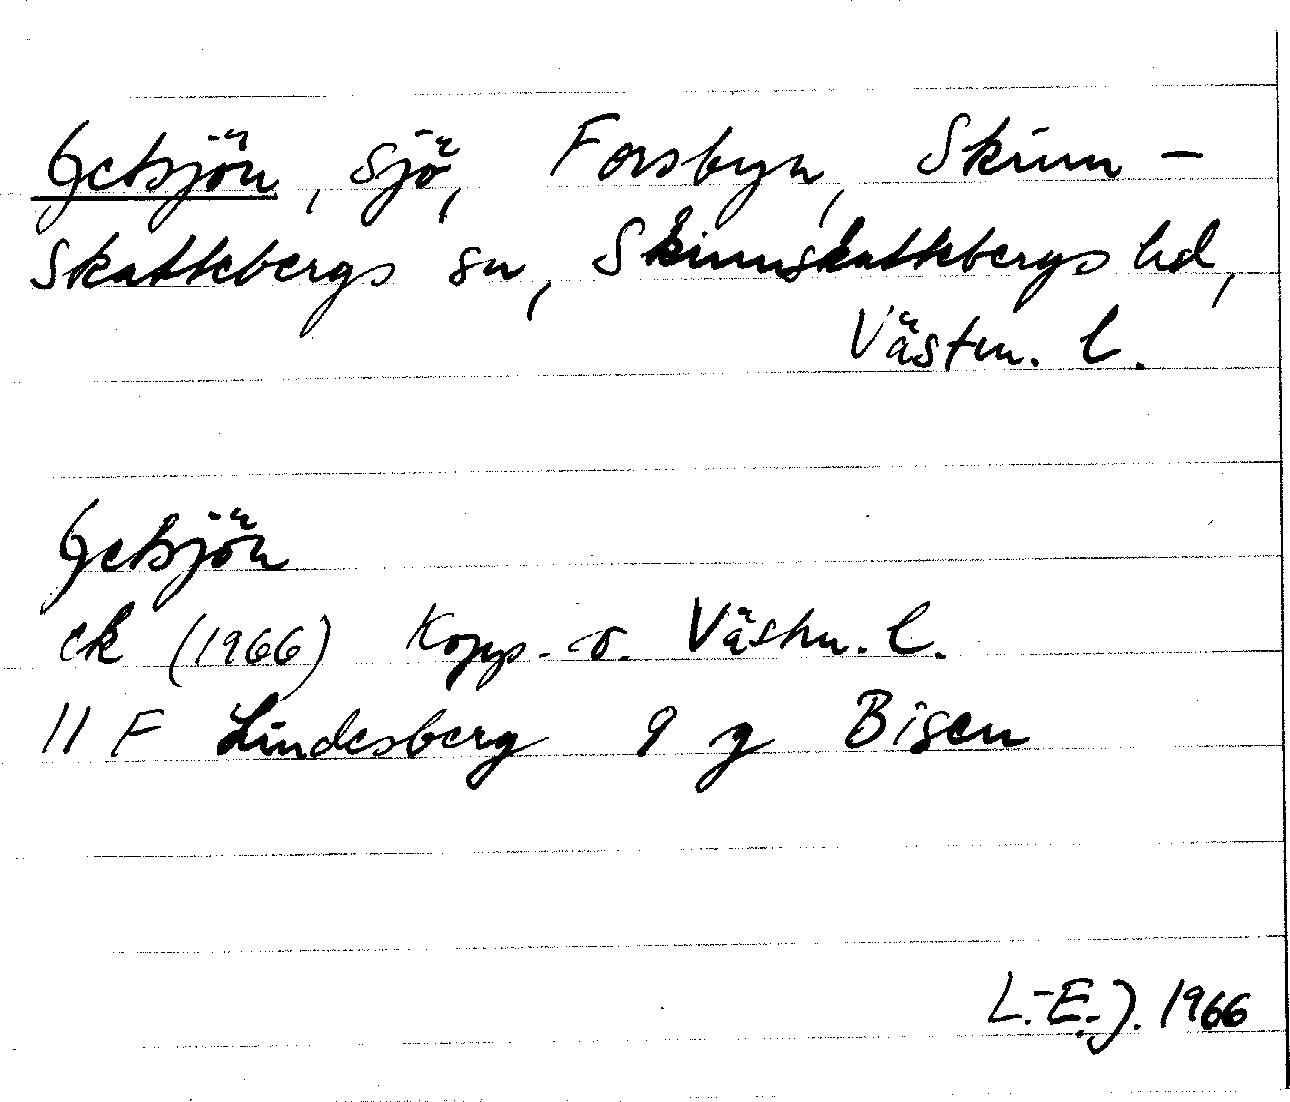 Getsjön, sjö, Forsbyn, Skinn-
Skattebergs sn, Skinnskattebergs hd,
Västm. l.
Getsjön
ek (1966) Kopp. o. Västm. l.
11 F Lindesberg 9 g Bisen
L.-E.J. 1966